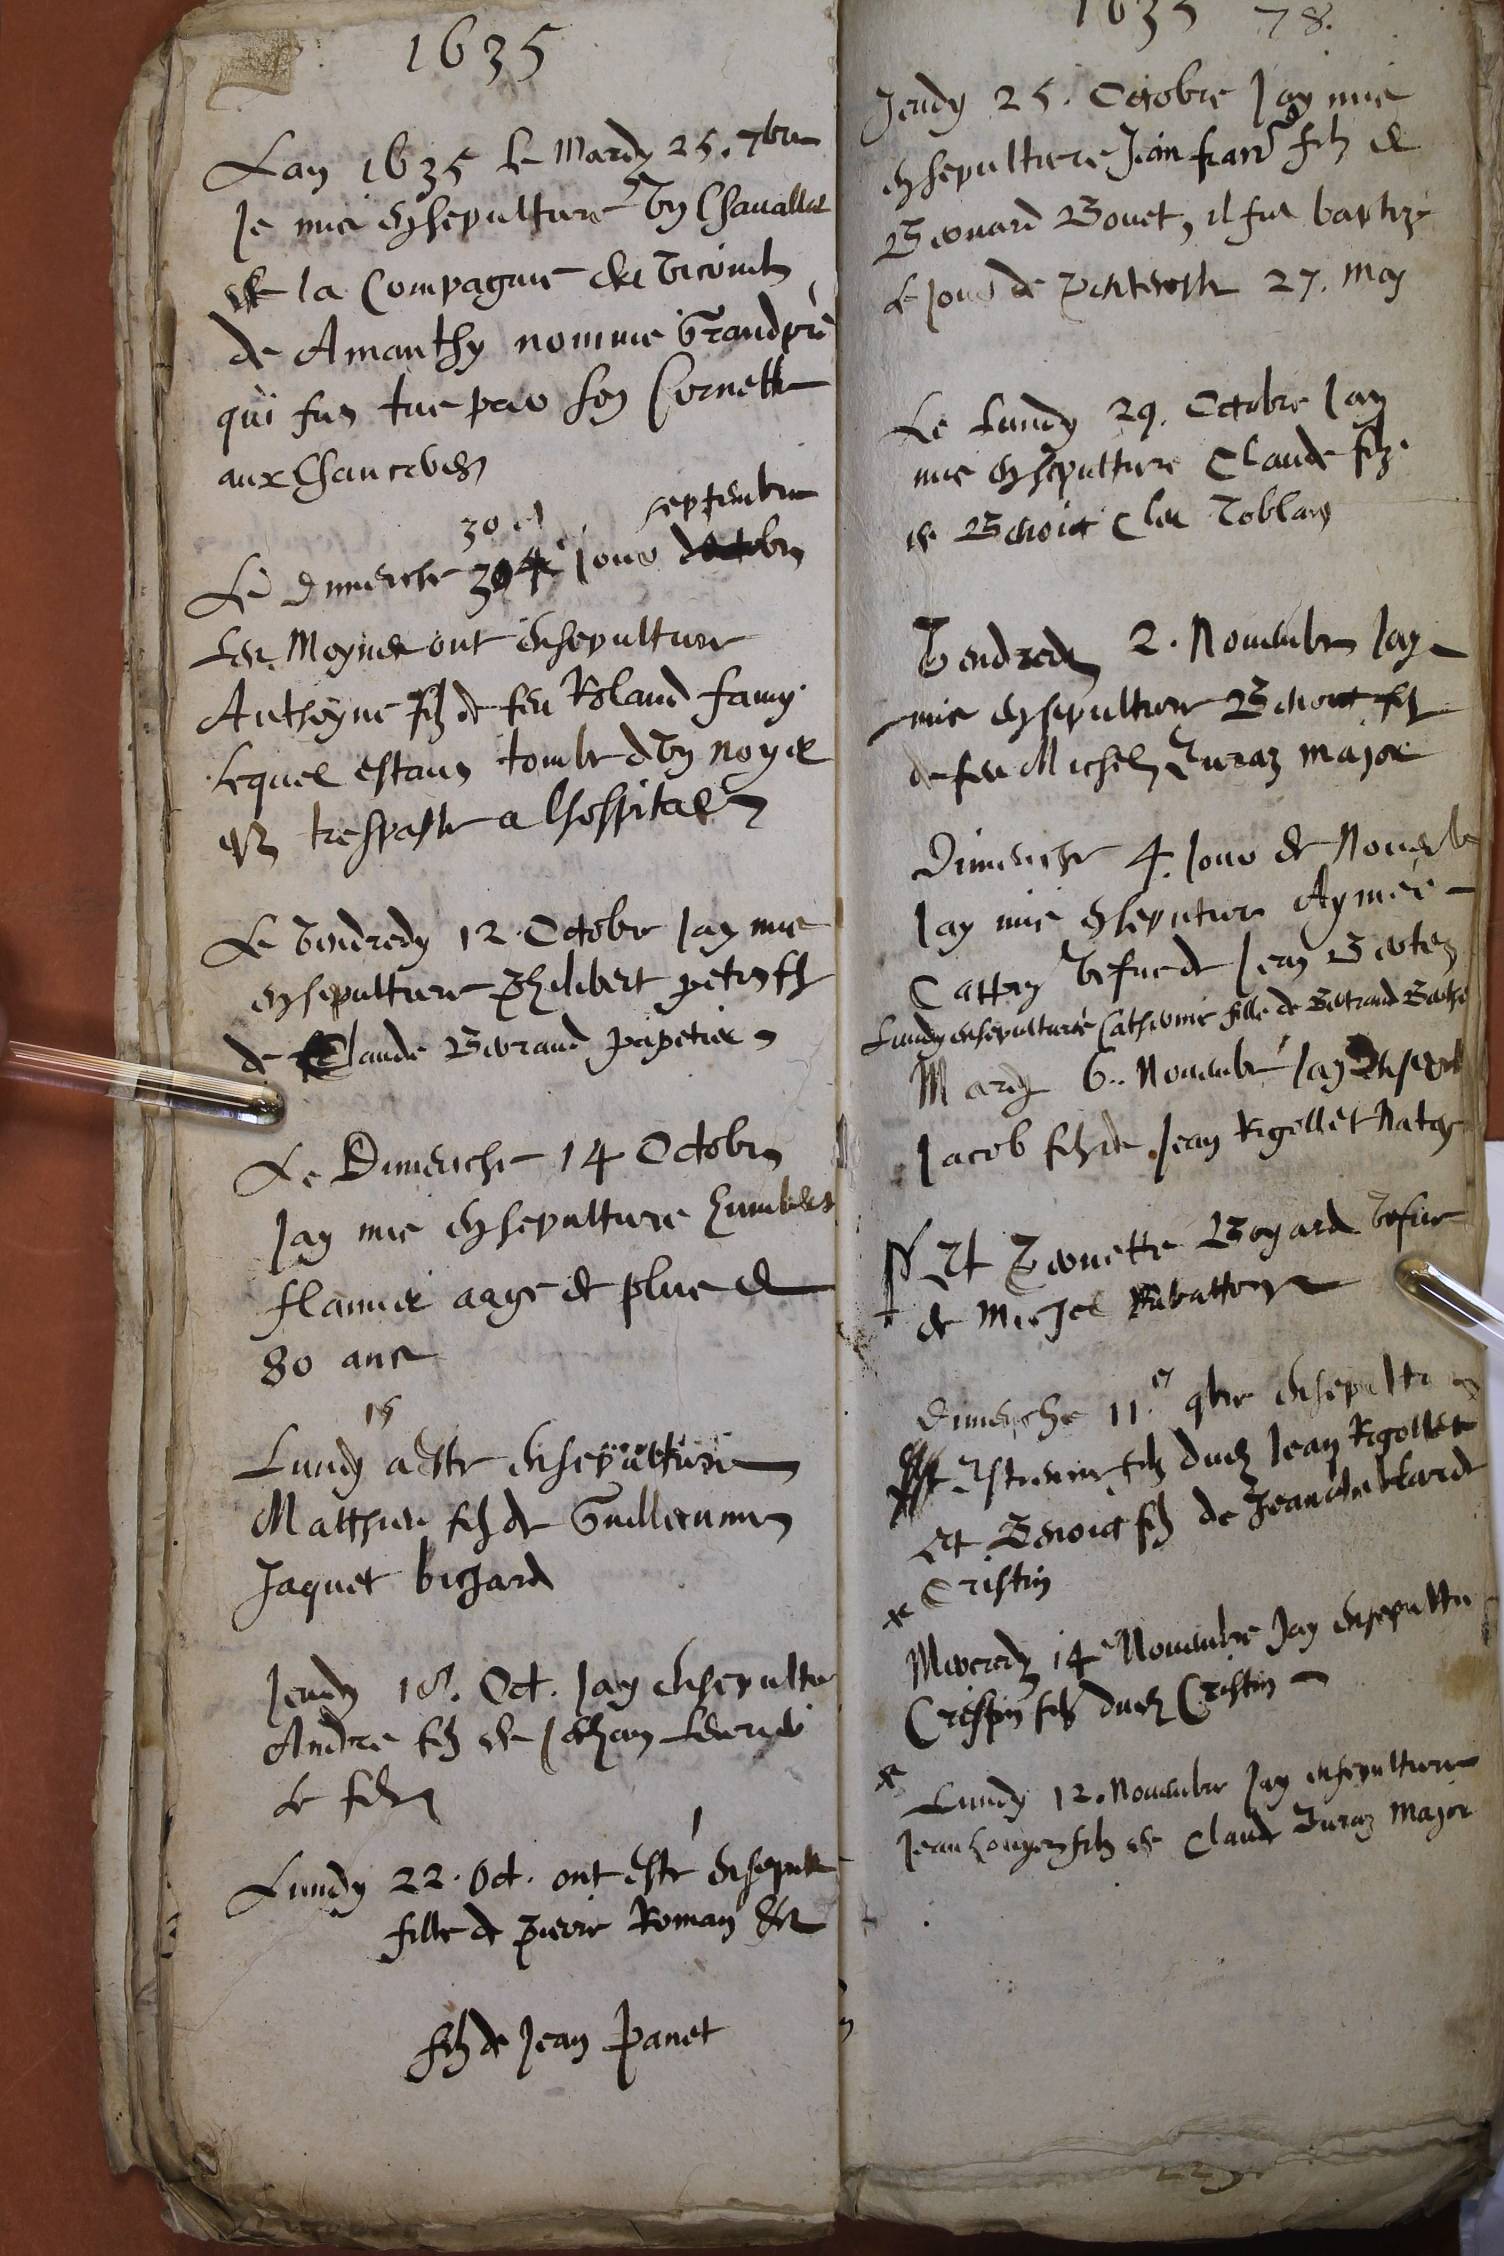 1635
Lan 1635 le Mardy 25. 7bre
Je mis en sepulture Vn Chauallet
de la Compagnie du Viconte
de Amanthy nomme Grandprè
qui fut tue par son Cornette
aux
30e septembre
Le Dimenche jour doctobre
Les Moynes ont ensepulture
Anthoyne filz de feu Roland famy
lequel estant tombe dVn noyer
est trespasse a lhospital
Le Vendredy 12 Octobre Jay mis
en sepulture Philibert petit filz
de Claude Beraud papetier
Le Dimenche 14 Octobre
Jay mis en sepulture humbert
flamier aage de plus de
80 ans
15
Lundy a este ensepulture
Matthieu filz de Guillerme
Jaquet bichard
Jeudy 18. Oct. Jay ensepulture
Andre filz de Jehan
le filz
Lundy 22. Oct. ont esté ensepult
fille de Pierre Roman &
filz de Jean Panet
1635 78.
Jeudy 25. Octobre Jay mis
en sepulture Jean fran filz de
Bernard Bouet, il fut baptizé
le jour de Pentecoste 27. may
Le Lundy 29. Octobre Jay
mis en sepulture Claude filz
de Benoict
Vendredy 2. Nouembre Jay
mis en sepulture Benoict filz
de feu Michel Juraz major
Dimenche 4. jour de Nouembre
Jay mis en sepulture Aymée
Cattry Vefue de Jean
Lundy ensepulturé Catherine fille de Bertrand
Mardy 6. Nouembre Jay ensepul
Jacob filz de Jean Rigollet
Et Pernette Boyard Vefue
de Michel
Dimenche 11.e 9bre ensepultu
Estienne filz dudit Jean Rigollet
Et Benoict filz de
Cristin
Mercredy 14e Nouembre Jay ensepultu
Crespin filz dudit Cristin
Lundy 12. Nouembre Jay ensepulture
Jean filz de Claude Juraz major